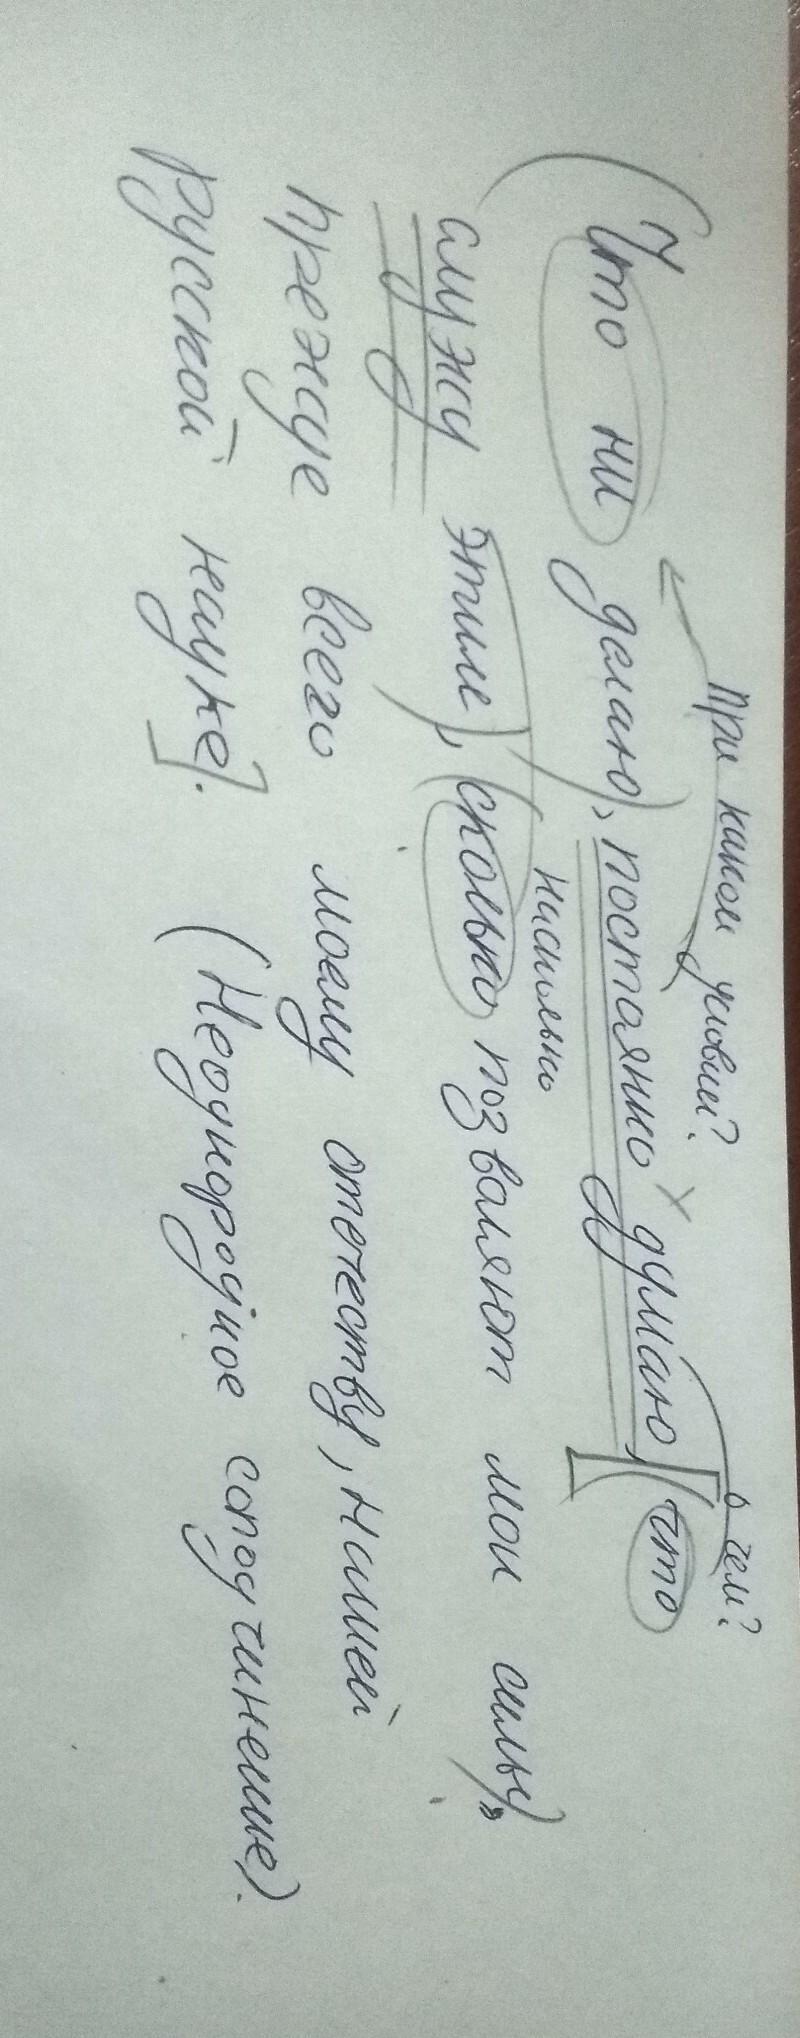 При каком условии? о чем?
(Что ни делаю), постоянно думаю, [(что
служу этим), (сколько позваляют мои силы),
насколько
прежде всего моему отечеству, нашей
русской науке]. (Неоднородное соподчинение).